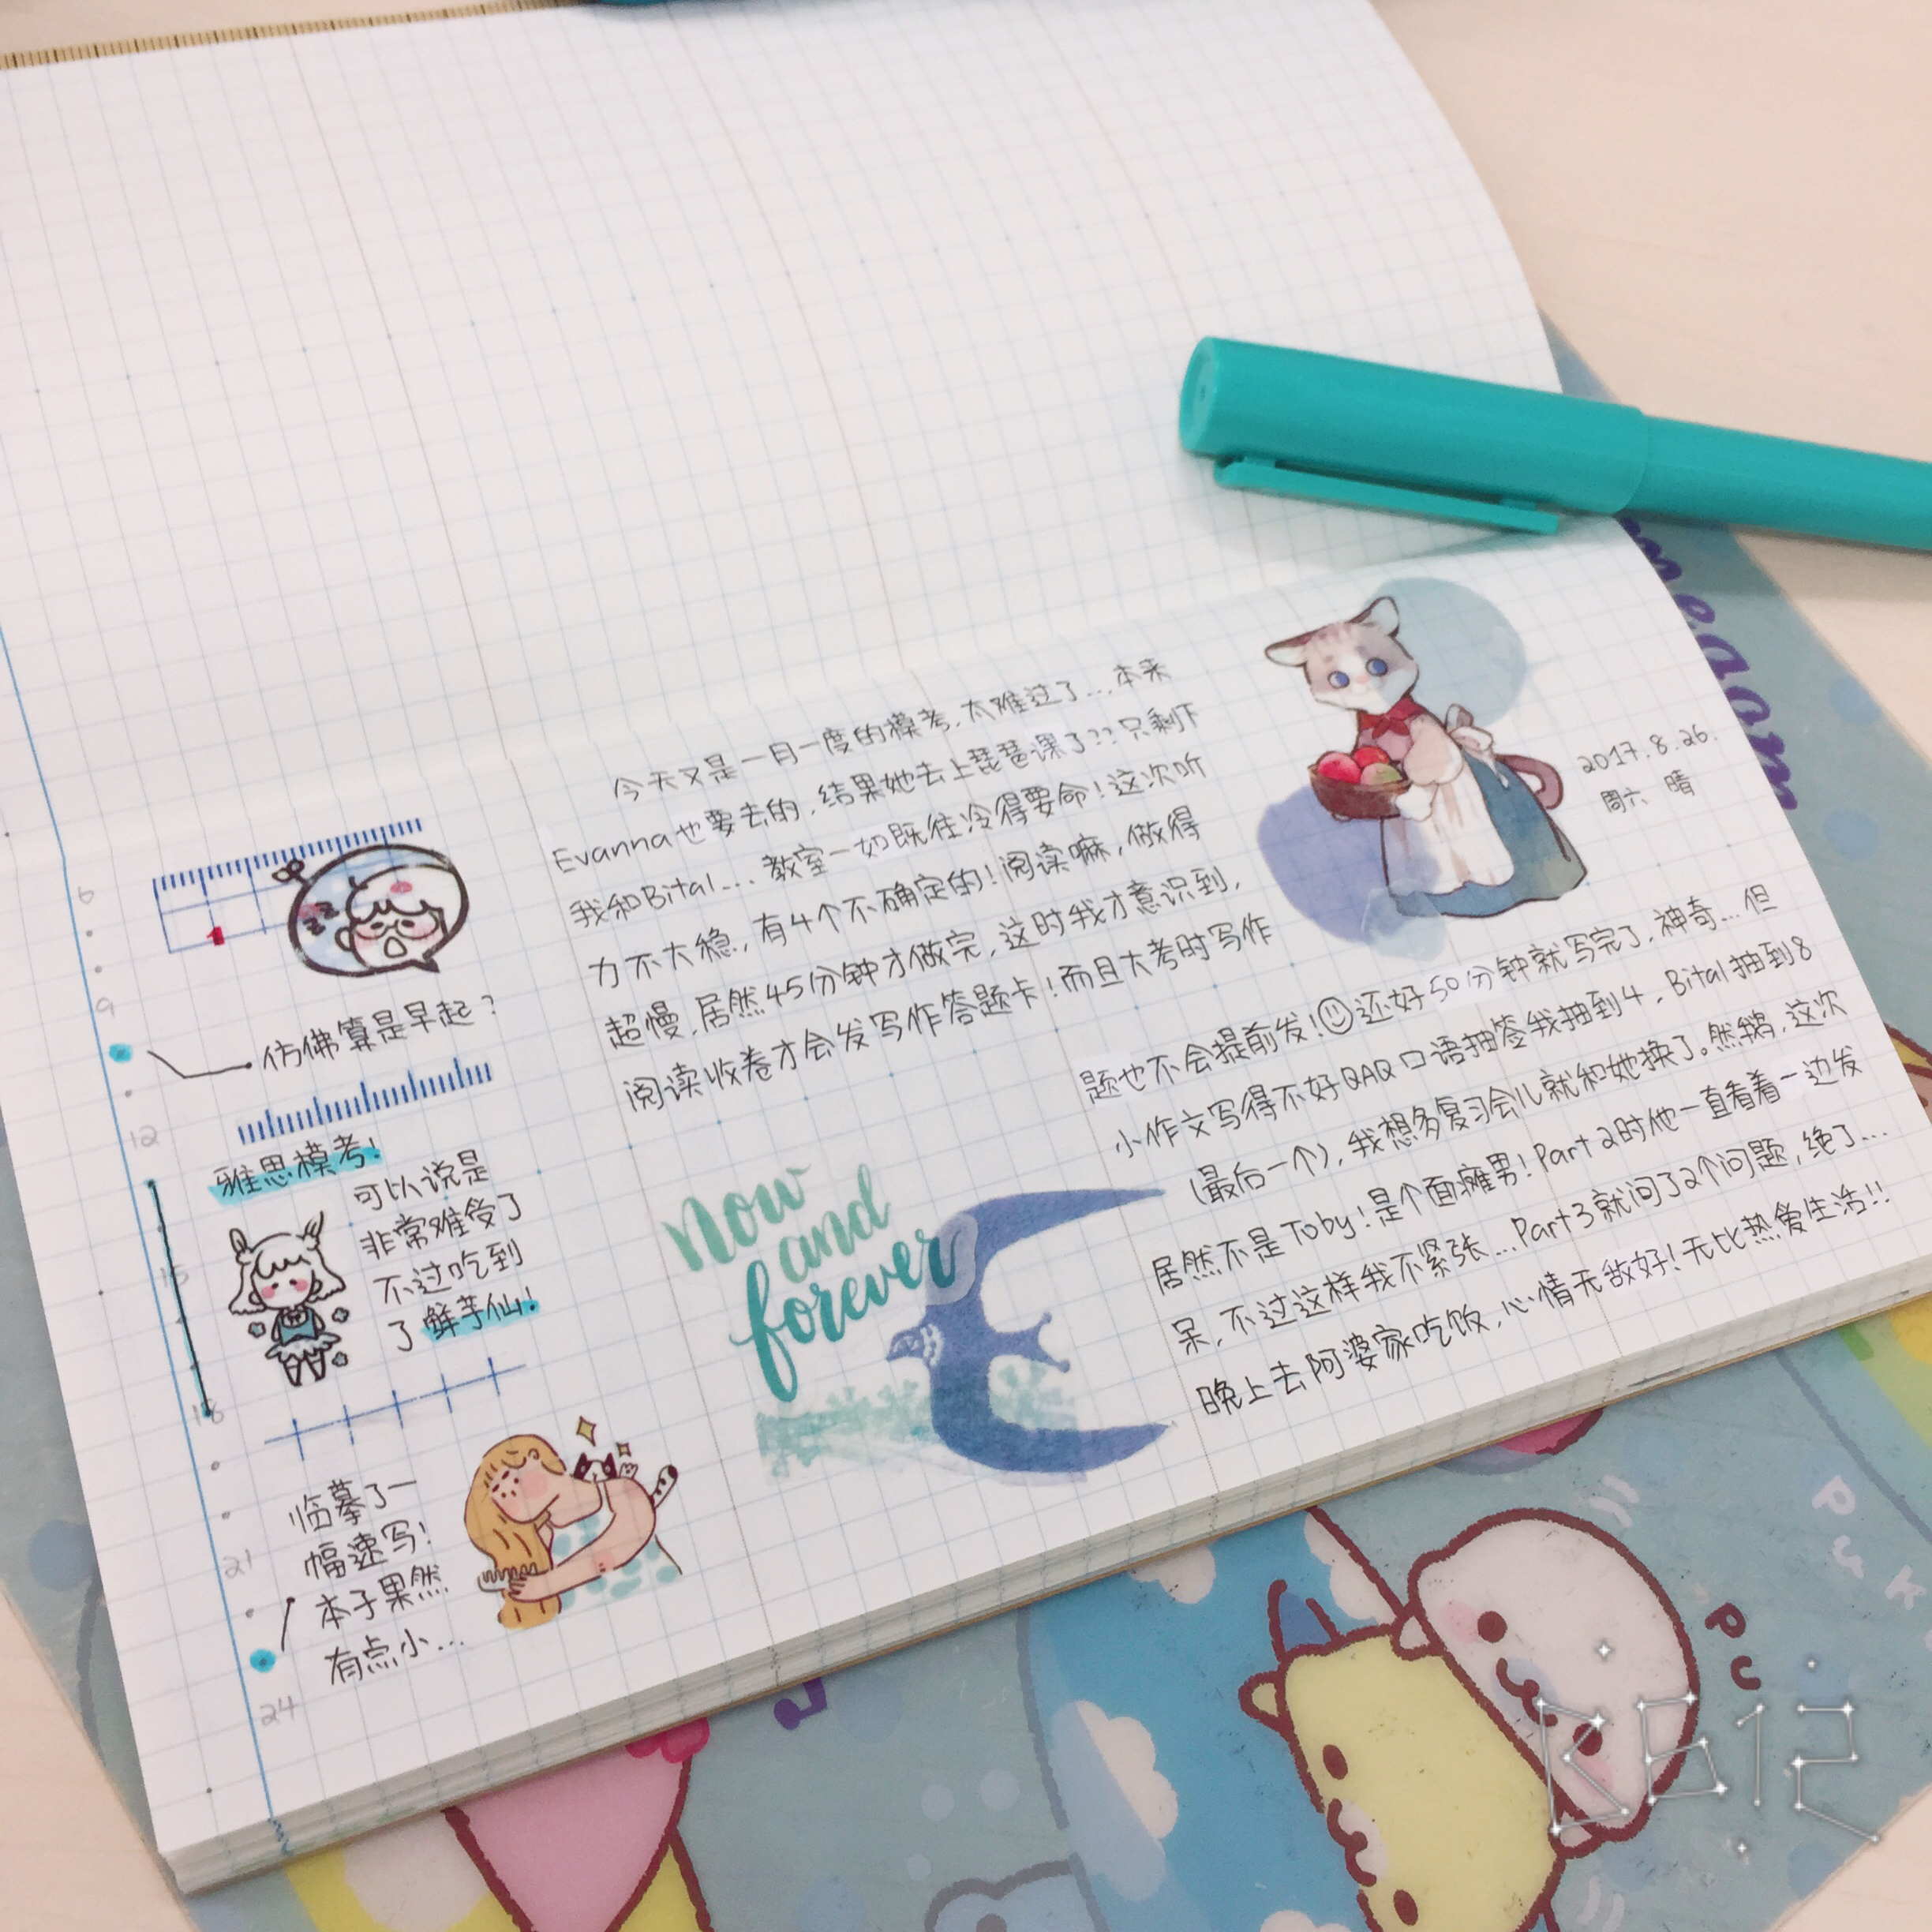 今天又是一月一度的模考，太难过了...本来
Evanna也要去的，结果她去上琵琶课了??只剩下
我和Bital...教室一如既往冷得要命！这次听
力不大稳，有4个不确定的！阅读嘛，做得
超慢，居然45分钟才做完，这时我才意识到，
阅读收卷才会发写作答题卡！而且大考时写作
2017.8.26.
周六 晴
题也不会提前发！还好50分钟就写完了，神奇...但
小作文写得不好QAQ口语抽签我抽到4，Bital抽到8
(最后一个)，我想多复习会儿就和她换了。然鹅，这次
居然不是Toby！是个面瘫男！Part 2时他一直看着一边发
呆，不过这样我不紧张...Part3就问了2个问题，绝了...
晚上去阿婆家吃饭，心情无敌好！无比热爱生活!!
6
9
12
15
18
21
24
1
zzz
仿佛算是早起？
雅思模考！
可以说是
非常难受了
不过吃到
了鲜芋仙！
临摹了一
幅速写！
本子果然
有点小...
now
and
forever
pu
puk
B612